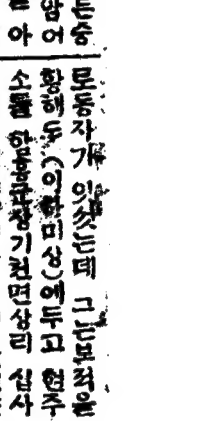 든중
암어
아
로동자가 잇섯는데 그는보적을
황해도(이하미상)에두고 현주
소를 함흥군상기천면상리 십사